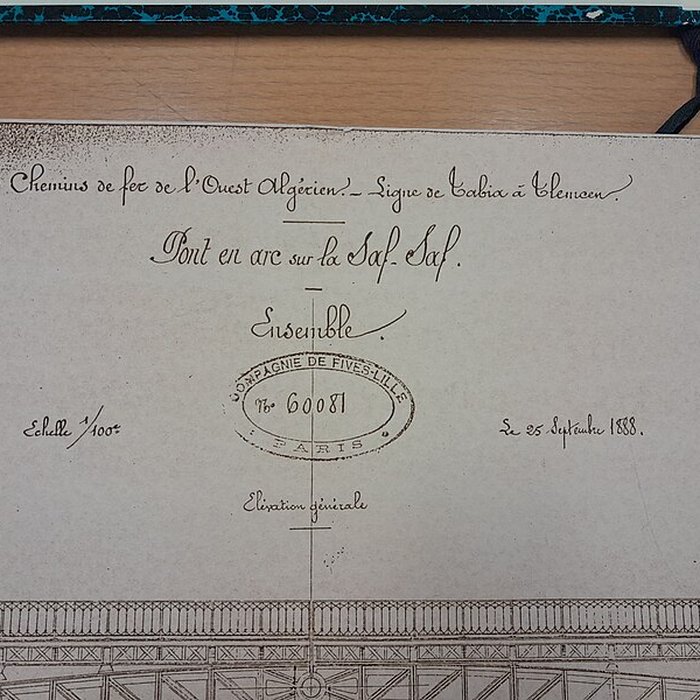 Chemins de fer de l'Ouest Algérien. - Ligne de Tabia à Tlemcen.
Pont en arc sur la Saf-Saf.
Ensemble.
COMPAGNIE DE FIVES-LILLE
No 60081
PARIS
Echelle 1/100e
Le 25 Septembre 1888.
Elévation générale